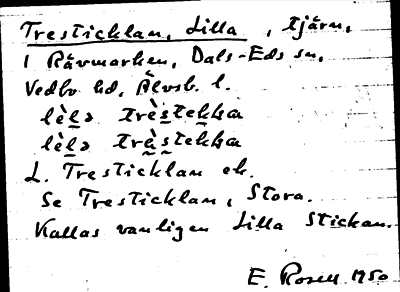 Tresticklan, Lilla, tjärn,
i Rävmarken, Dals-Eds sn,
Vedbo hd, Älvsb. l.
lèlə trèstekka
lèlə trèstekka
L. Tresticklan ek.
Se Tresticklan, Stora.
Kallas vanligen Lilla Stickan.
E. Rosell 1950